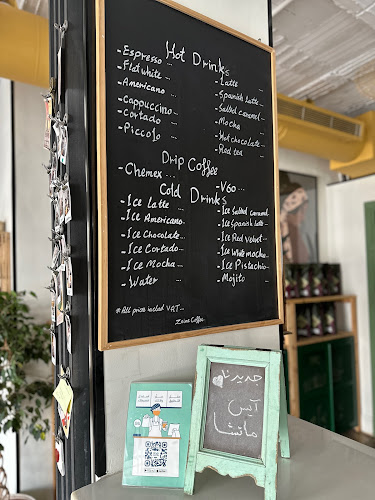 Hot Drinks
- Espresso ...
- Flat white ...
- Americano ...
- Cappuccino ...
- Cortado ...
- Piccolo ...
- Latte ...
- Spanish Latte ...
- Salted caramel ...
- Mocha ...
- Hot chocolate ...
- Red tea ...
Drip Coffee
- Chemex ...
- V60 ...
Cold Drinks
- Ice Latte ...
- Ice Americano ...
- Ice Chocolate ...
- Ice Cortado ...
- Ice Mocha ...
- Water ...
- Ice Salted caramel
- Ice Spanish latte ...
- Ice Red Velvet ...
- Ice White mocha ...
- Ice Pistachio ...
- Mojito ...
*All prices includ VAT...
جديدنا
آيس
ماتشا